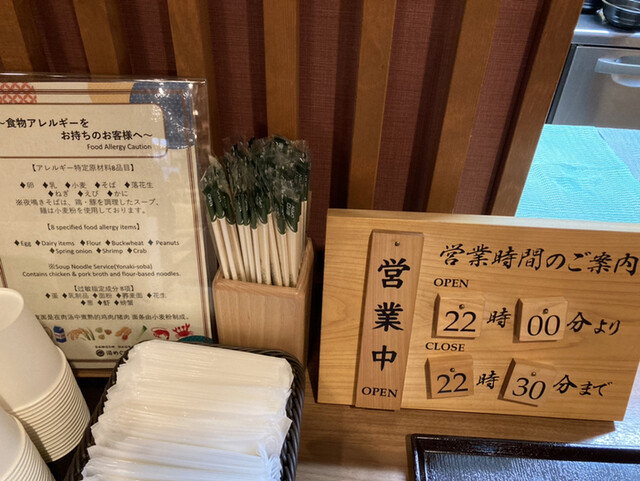 ~食物アレルギーを
お持ちのお客様へ~
Food Allergy Caution
【アレルギー特定原材料8品目】
◆卵 ◆乳 ◆小麦 ◆そば ◆落花生
◆ねぎ ◆えび ◆かに
※夜鳴きそばは、鶏・豚を調理したスープ、
麺は小麦粉を使用しております。
【8 specified food allergy items】
◆Egg ◆Dairy items ◆Flour ◆Buckwheat ◆Peanuts
◆Spring onion ◆Shrimp ◆Crab
※Soup Noodle Service(Yonaki-soba)
Contains chicken & pork broth and flour-based noodles.
【过敏指定成分 8项】
◆蛋 ◆乳制品 ◆面粉 ◆荞麦面 ◆花生
◆葱 ◆虾 ◆螃蟹
営業中
OPEN
営業時間のご案内
OPEN
22時00分より
CLOSE
22時30分まで